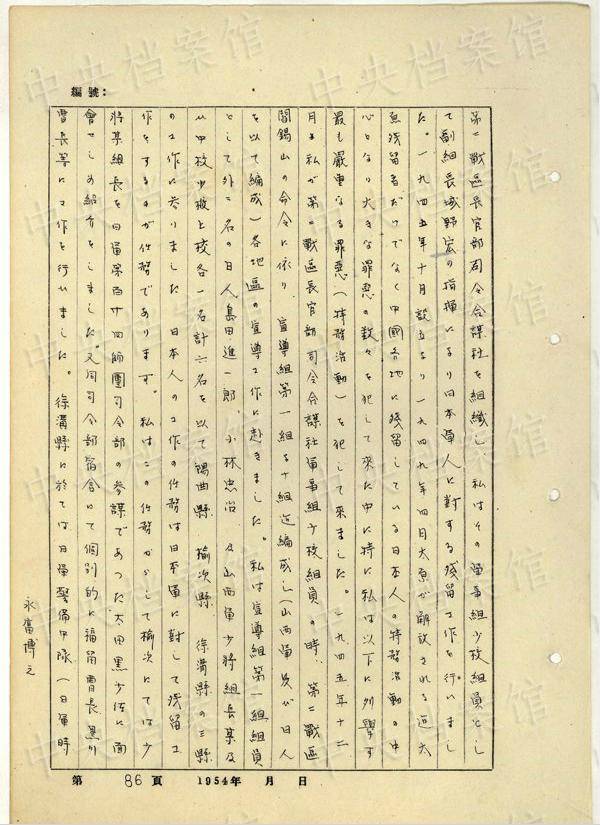 編號：
第二戰區長官部司令合謀社を組織し、私はその軍事組少校組員とし
て副組長城野宏の指揮により日本軍人に對する残留工作を行いまし
た。一九四五年十月設立より一九四九年四月太原が解放される迄太
原残留者だけでなく中國各地に残留している日本人の特務活動の中
心となり大きな罪悪の数々を犯して来た中に特に私は以下に列擧す
最も嚴重なる罪悪（特務活動）を犯して来ました。一九四五年十二
月頃私が第二戰區長官部司令合謀社軍事組少校組員の時、第二戰區
閻錫山の命令に依り、宣導組第一組より十組迄編成し（山西軍及び日人
を以て編成）各地區の宣導工作に赴きました。私は宣導組第一組組員
として外に二名の日人島田進一郎、小林忠治 及山西軍少將組長某及
中校少校上校各一名計六名を以て陽曲縣 榆次縣 徐溝縣の三縣
の工作に参りました 日本人の工作の任務は日本軍に對して残留工
作をするのが任務であります。私はこの任務からして榆次にては少
將某組長を日軍第百十四師團司令部の参謀であった太田黒少佐に面
會せしめ紹介をしました。又同司令部宿舎にて個別的に福留曹長、黒川
曹長等に工作を行いました。徐溝縣に於ては日軍警備中隊（日軍時
永富博之
第 86 頁 1954年 月 日
中央档案馆